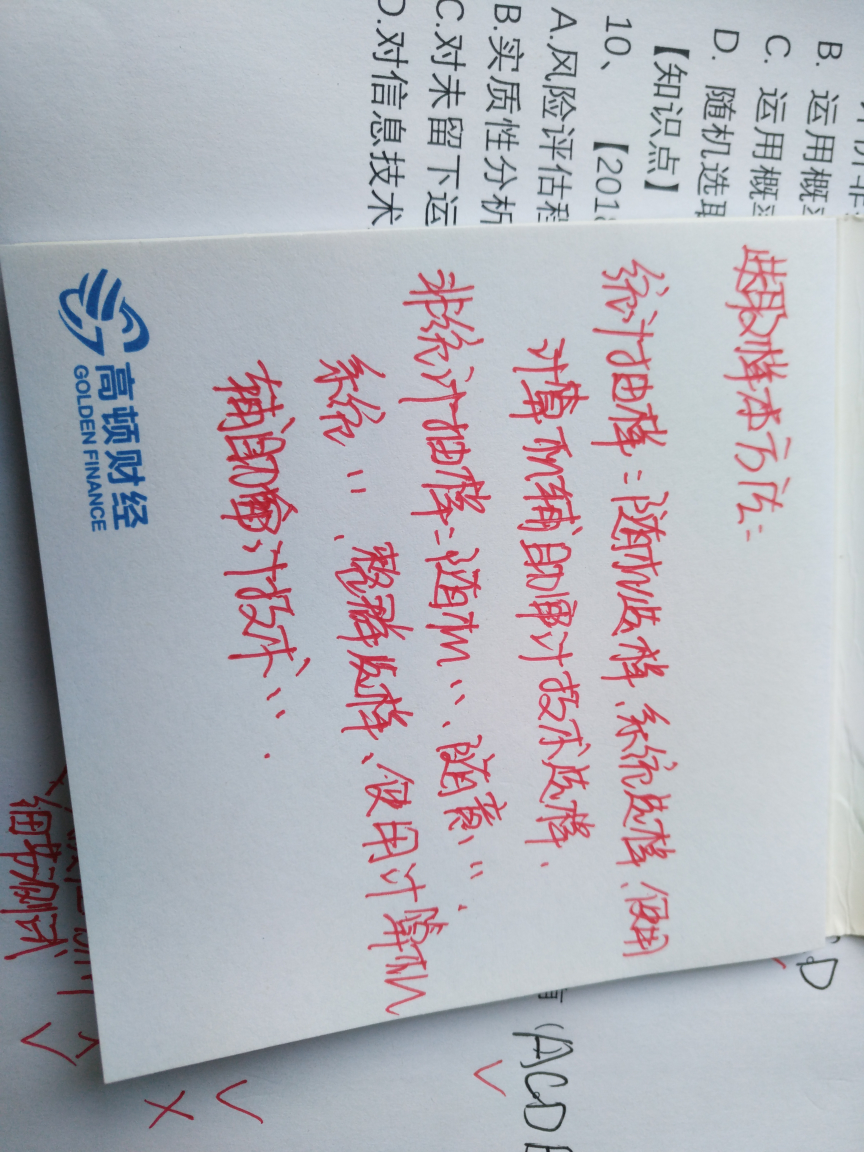 B. 运用概
C. 运用概
D. 随机选取
【知识点】
10、 【201
A.风险评估程
B.实质性分析
C.对未留下运
D.对信息技术
选取样本方法:
统计抽样:随机选样、系统选样、使用
计算机辅助审计技术选样.
非统计抽样:随机〃、随意〃、
系统〃、整群选样、使用计算机
辅助审计技术〃.
高顿财经
GOLDEN FINANCE
D
ACD
细节测试